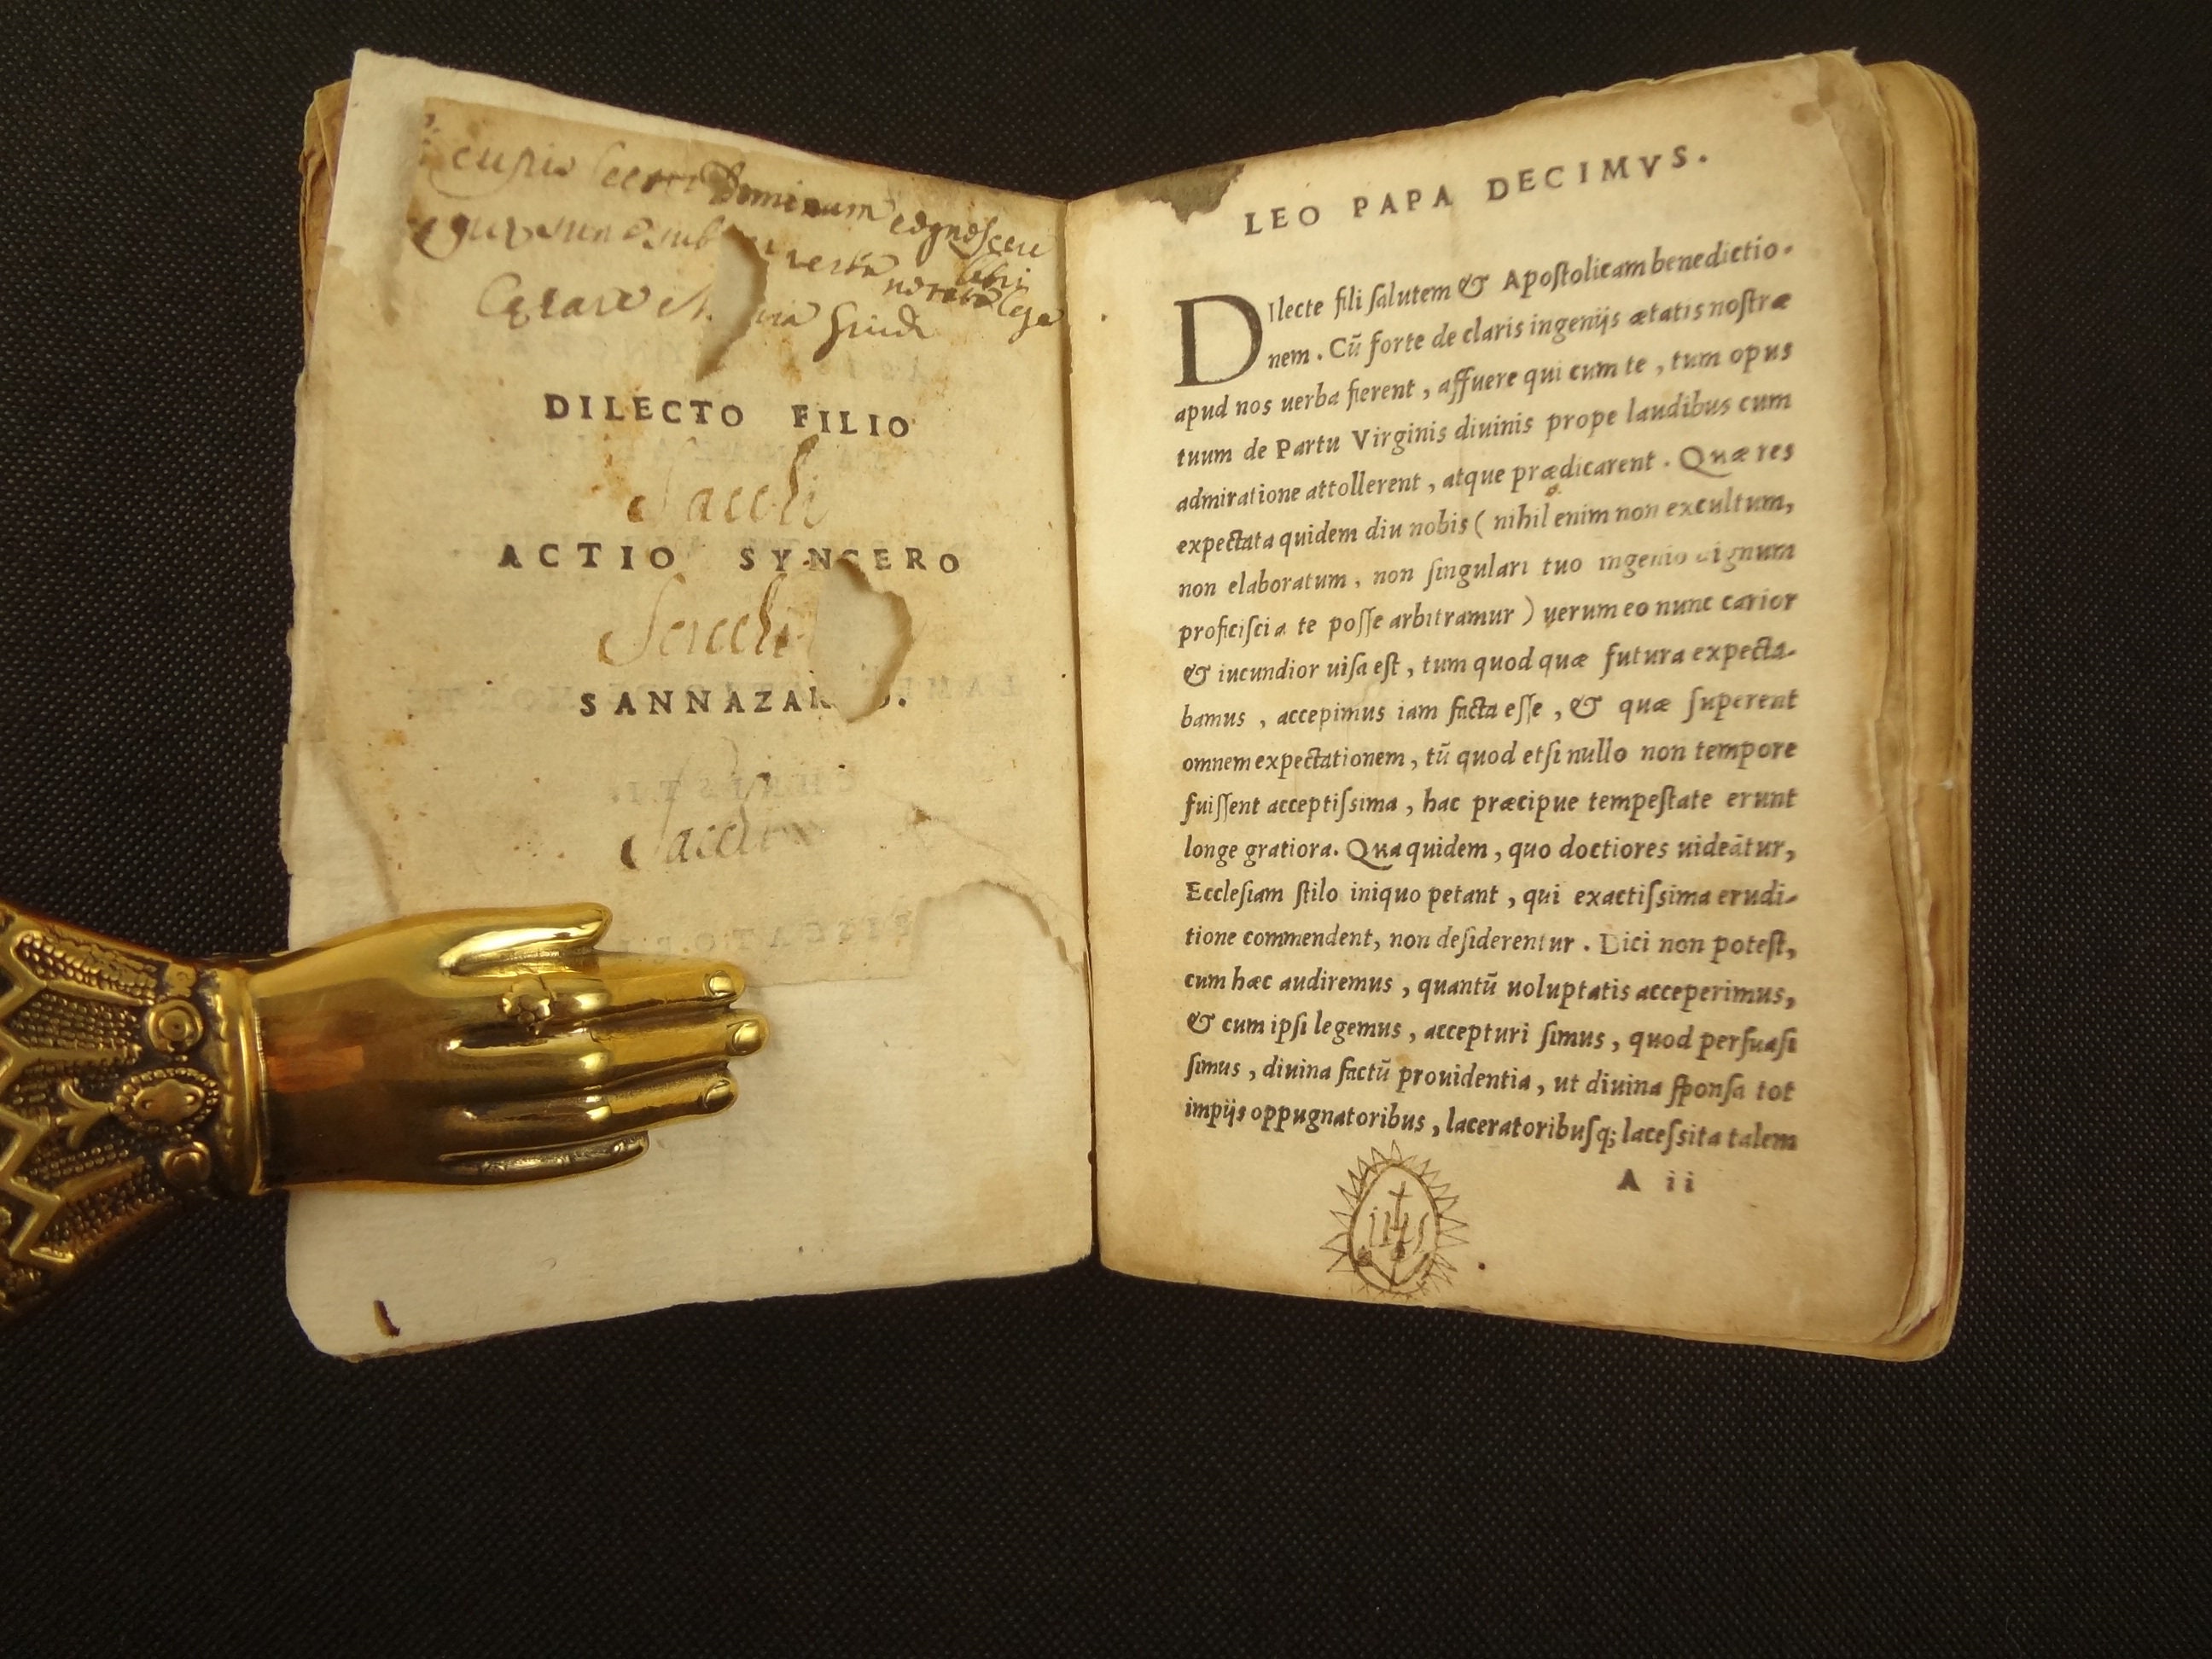 cupis Dominum cognoscere
libri
DILECTO FILIO
ACTIO SYNCERO
SANNAZAR .
LEO PAPA DECIMVS.
DIlecte fili ſalutem & Apoſtolicam benedictio-
nem. Cū forte de claris ingenijs ætatis noſtræ
apud nos uerba fierent, affuere qui cum te, tum opus
tuum de Partu Virginis diuinis prope laudibus cum
admiratione attollerent, atque prædicarent. Quæ res
expectata quidem diu nobis (nihil enim non excultum,
non elaboratum, non ſingulari tuo ingenio dignum
proficiſci a te poſſe arbitramur) uerum eo nunc carior
& iucundior uiſa eſt, tum quod quæ futura expecta-
bamus, accepimus iam facta eſſe, & quæ ſuperent
omnem expectationem, tū quod etſi nullo non tempore
fuiſſent acceptiſsima, hac præcipue tempeſtate erunt
longe gratiora. Qua quidem, quo doctiores uideātur,
Eccleſiam ſtilo iniquo petant, qui exactiſsima erudi-
tione commendent, non deſiderentur. Dici non poteſt,
cum hæc audiremus, quantū uoluptatis acceperimus,
& cum ipſi legemus, accepturi ſimus, quod perſuaſi
ſimus, diuina factū prouidentia, ut diuina ſponſa tot
impijs oppugnatoribus, laceratoribuſq; laceſsita talem
A ii
ihs